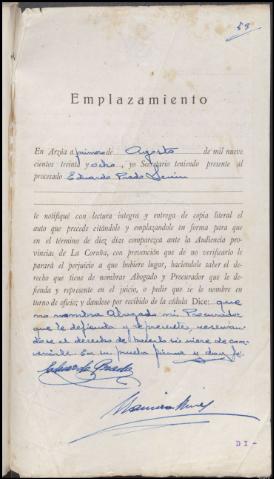 58
Emplazamiento
En Arzúa a primero de Agosto de mil nueve
cientos treinta y ocho, yo Secretario teniendo presente al
procesado Eduardo Prado
le notifiqué con lectura íntegra y entrega de copia literal el
auto que precede citándolo y emplazándole en forma para que
en el término de diez días comparezca ante la Audiencia pro-
vincias de La Coruña, con prevención que de no verificarlo le
parará el perjuicio a que hubiere lugar, haciéndole saber el dere-
cho que tiene de nombrar Abogado y Procurador que le de-
fienda y represente en el juicio, o pedir que se le nombre en
turno de oficio; y dandose por recibido de la cédula Dice: que
no nombra Abogado ni Procurador
que le defienda y represente, reservan-
dose el derecho de hacerlo si viere de con-
venirle. En su prueba firma y doy fe.
Eduardo Prado
D I -